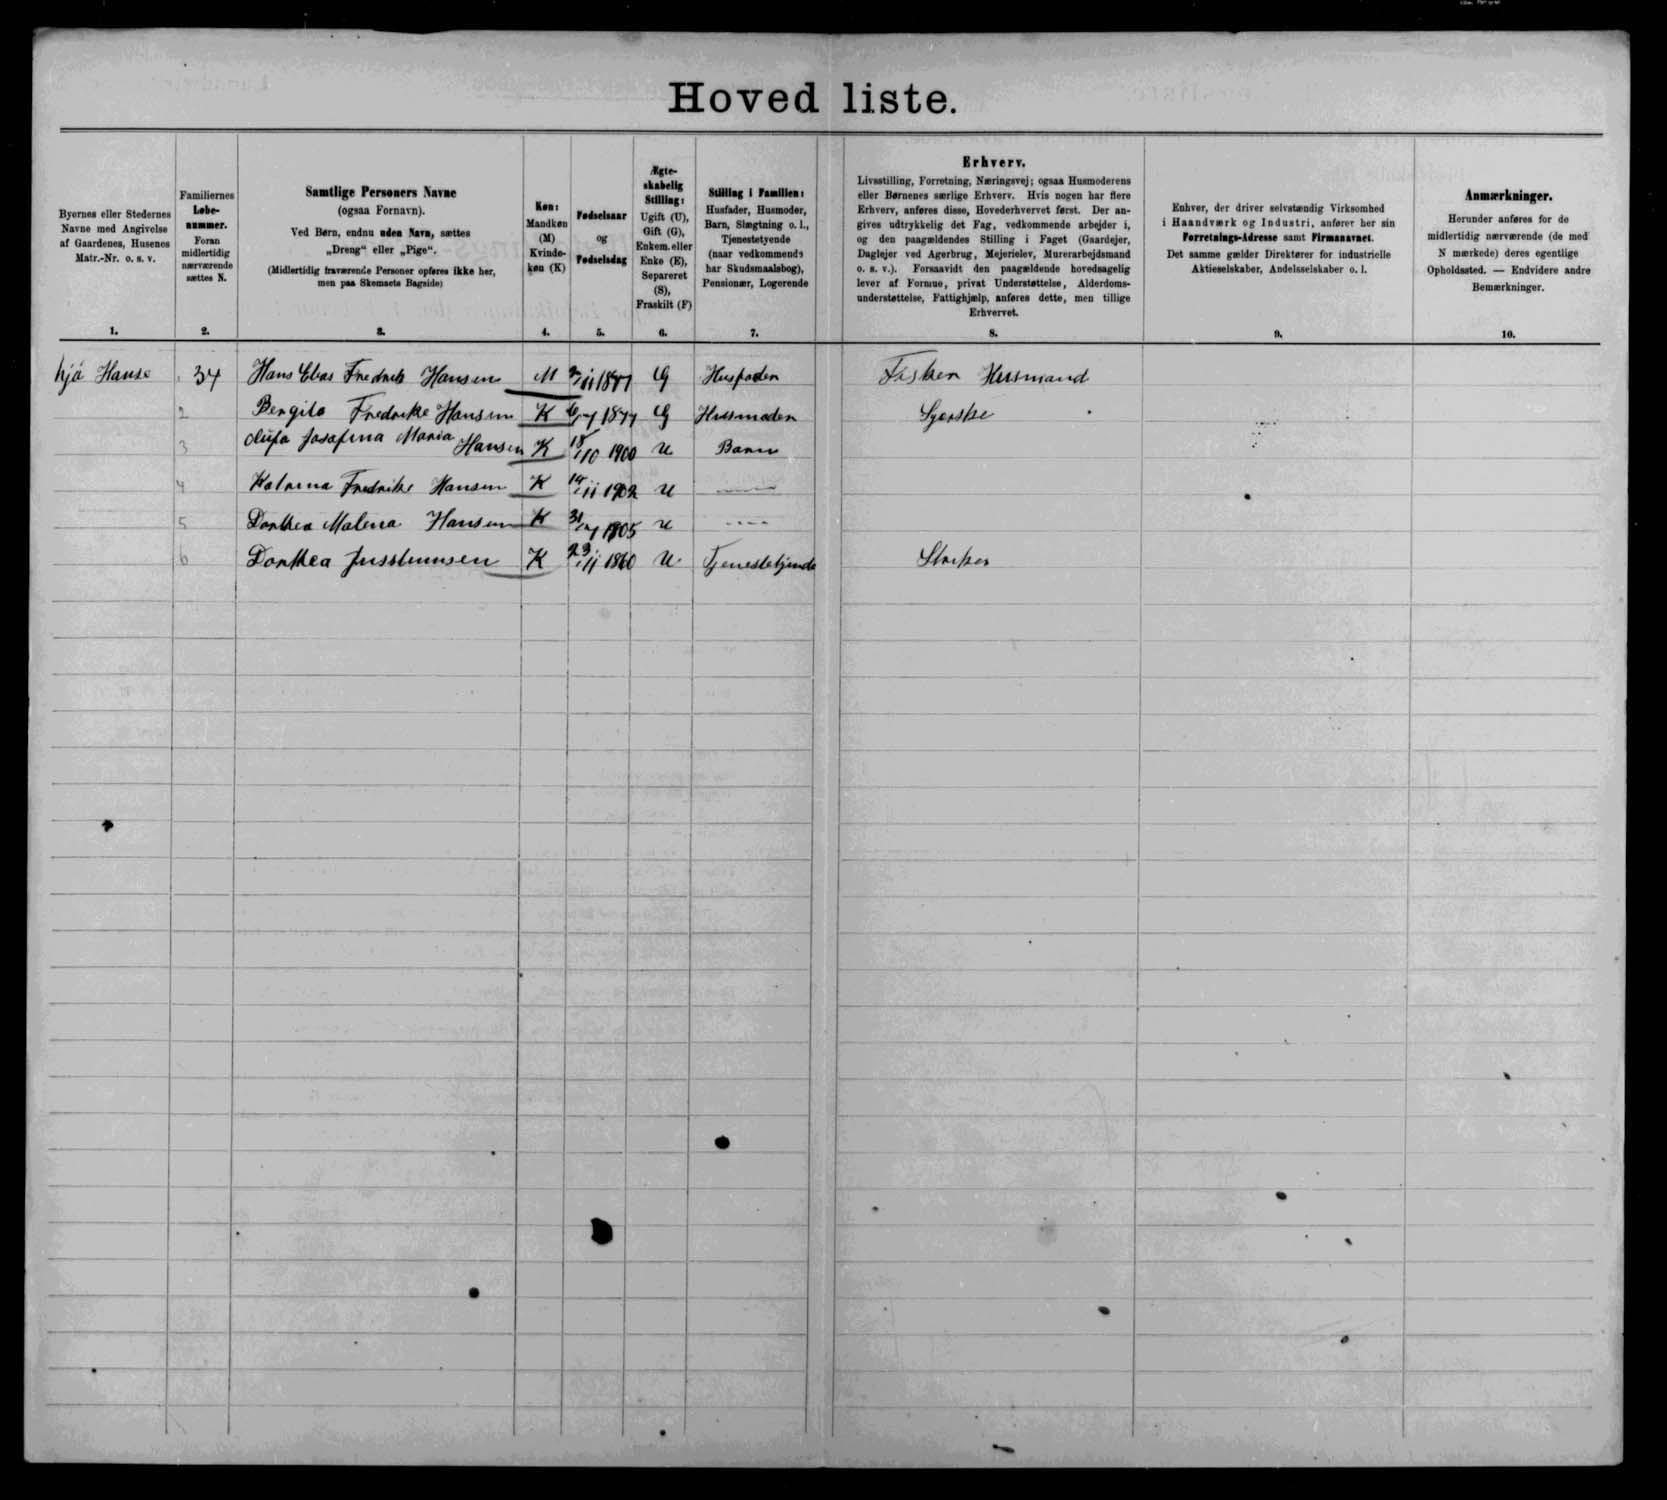 Hovedliste.
Byernes eller Stedernes
Navne med Angivelse
af Gaardenes, Husenes
Matr.-Nr. o. s. v.
1.
Familiernes
Løbe-
nummer.
Foran
midlertidig
nærværende
sættes N.
2.
Samtlige Personers Navne
(ogsaa Fornavn).
Ved Børn, endnu uden Navn, sættes
„Dreng“ eller „Pige“.
(Midlertidig fraværende Personer opføres ikke her,
men paa Skemaets Bagside)
3.
Køn:
Mandkøn
(M)
Kvinde-
køn (K)
4.
Fødselsaar
og
Fødselsdag
5.
Ægte-
skabelig
Stilling:
Ugift (U),
Gift (G),
Enkem. eller
Enke (E),
Separeret
(S),
Fraskilt (F)
6.
Stilling i Familien:
Husfader, Husmoder,
Barn, Slægtning o. l.,
Tjenestetyende
(naar vedkommende
har Skudsmaalsbog),
Pensionær, Logerende
7.
Erhverv.
Livsstilling, Forretning, Næringsvej; ogsaa Husmoderens
eller Børnenes særlige Erhverv. Hvis nogen har flere
Erhverv, anføres disse, Hovederhvervet først. Der an-
gives udtrykkelig det Fag, vedkommende arbejder i,
og den paagældendes Stilling i Faget (Gaardejer,
Daglejer ved Agerbrug, Mejerielev, Murerarbejdsmand
o. s. v.). Forsaavidt den paagældende hovedsagelig
lever af Formue, privat Understøttelse, Alderdoms-
understøttelse, Fattighjælp, anføres dette, men tillige
Erhvervet.
8.
Enhver, der driver selvstændig Virksomhed
i Haandværk og Industri, anfører her sin
Forretnings-Adresse samt Firmanavnet.
Det samme gælder Direktører for industrielle
Aktieselskaber, Andelsselskaber o. l.
9.
Anmærkninger.
Herunder anføres for de
midlertidig nærværende (de med
N mærkede) deres egentlige
Opholdssted. — Endvidere andre
Bemærkninger.
10.
hjá Hanse 34 Hans Elias Fredrik Hansen M 2/11 1877 G Husfader Fisker Husmand
2 Bergita Fredrike Hansen K 1877 G Husmoder Syerske
3 Josafina Maria Hansen K 18/10 1900 U Barn
4 Katrina Fredrike Hansen K 14/11 1902 U
5 Dorthea Malena Hansen K 1905 U
6 Dorthea K 23/11 1860 U Tjenestetjende